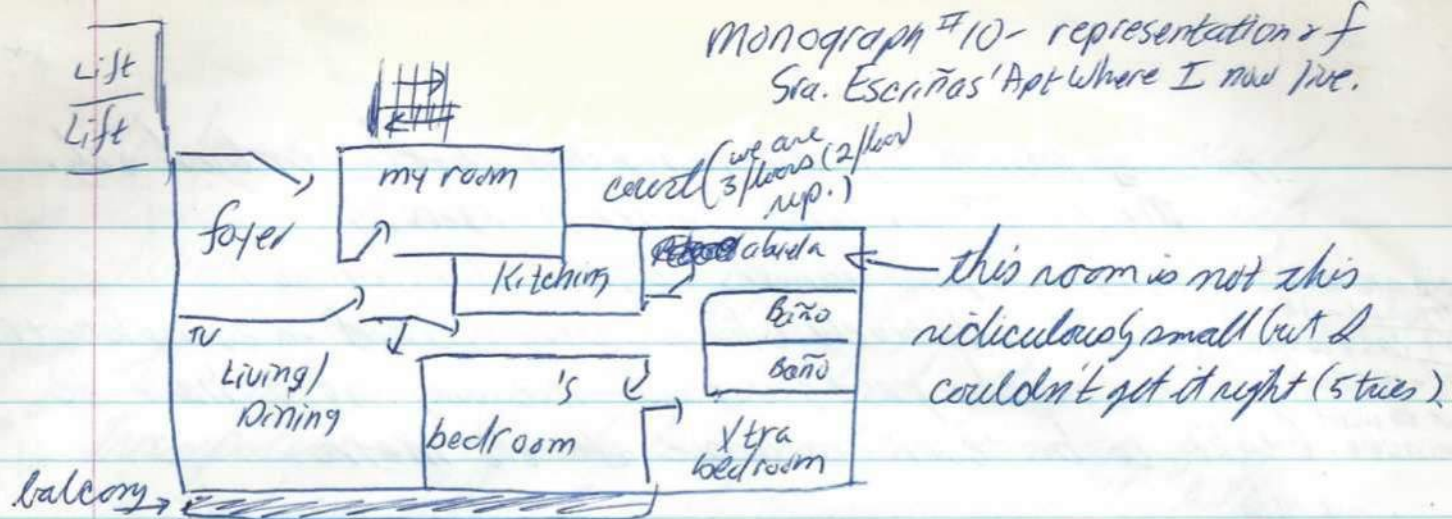 Monograph #10- representation of
Sra. Escriñas' Apt Where I now live.
Lift
Lift
my room
court (we are
3 floors (2/floor)
up.)
foyer
Kitching
abuela
this room is not this
ridiculously small but I
couldn't get it right (5 tries)
Baño
Baño
TV
Living/
Dining
's
bedroom
Xtra
bedroom
balcony